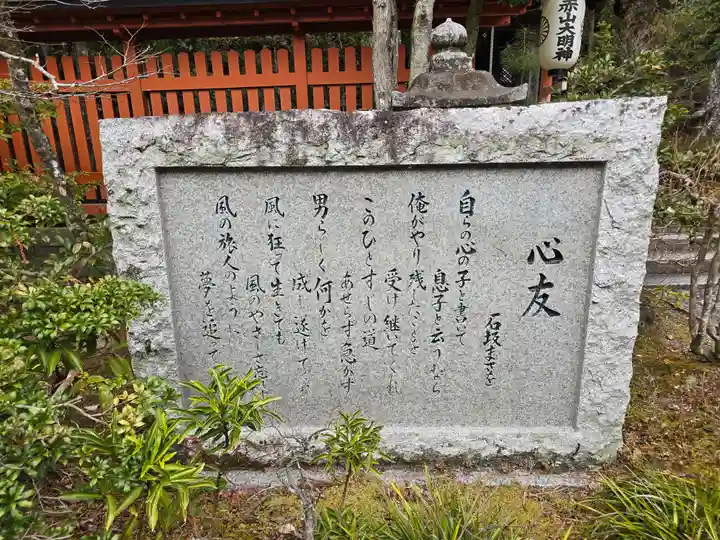 赤山大明神
心友
石坂まさを
自らの心の子と書いて
息子と云うなら
俺がやり残したことを
受け継いでくれ
このひとすじの道
あせらず急がず
男らしく何かを
成し遂げて
風に狂って生きても
風のやさしさ忘
風の旅人のように
夢を追って